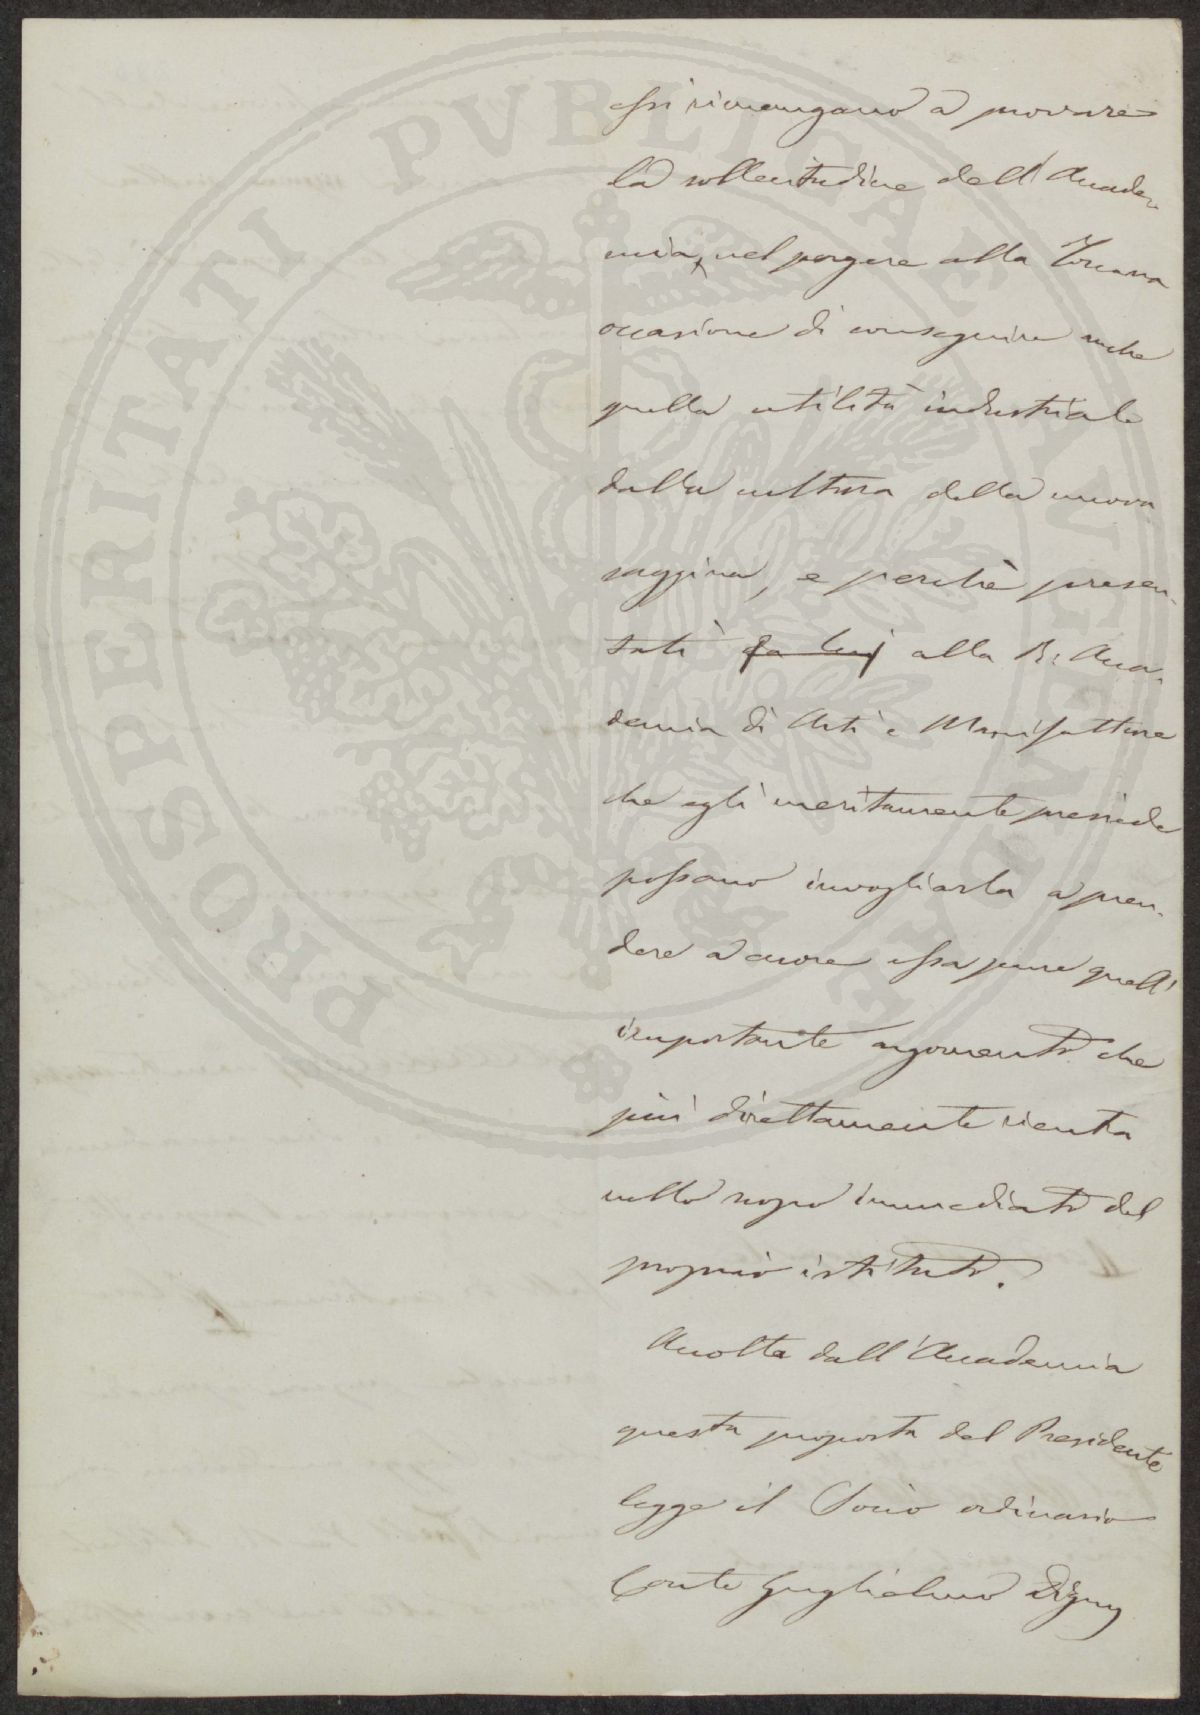 PROSPERITATI PVBLICAE AVGENDAE
essi rimangano a provare
la sollecitudine dell'Accade-
mia, nel porgere alla Toscana
occasione di conseguire anche
quella utilità industriale
dalla cultura della nuova
saggina, e perchè presen-
tati da lui alla R. Acca-
demia di Arti e Manifatture
che egli meritamente presiede
possano invogliarla a pren-
dere a cuore essa pure quell'
importante argomento che
più direttamente rientra
nello scopo immediato del
proprio istituto.
Accolta dall'Accademia
questa proposta del Presidente
legge il Socio ordinario
Conte Guglielmo Digny